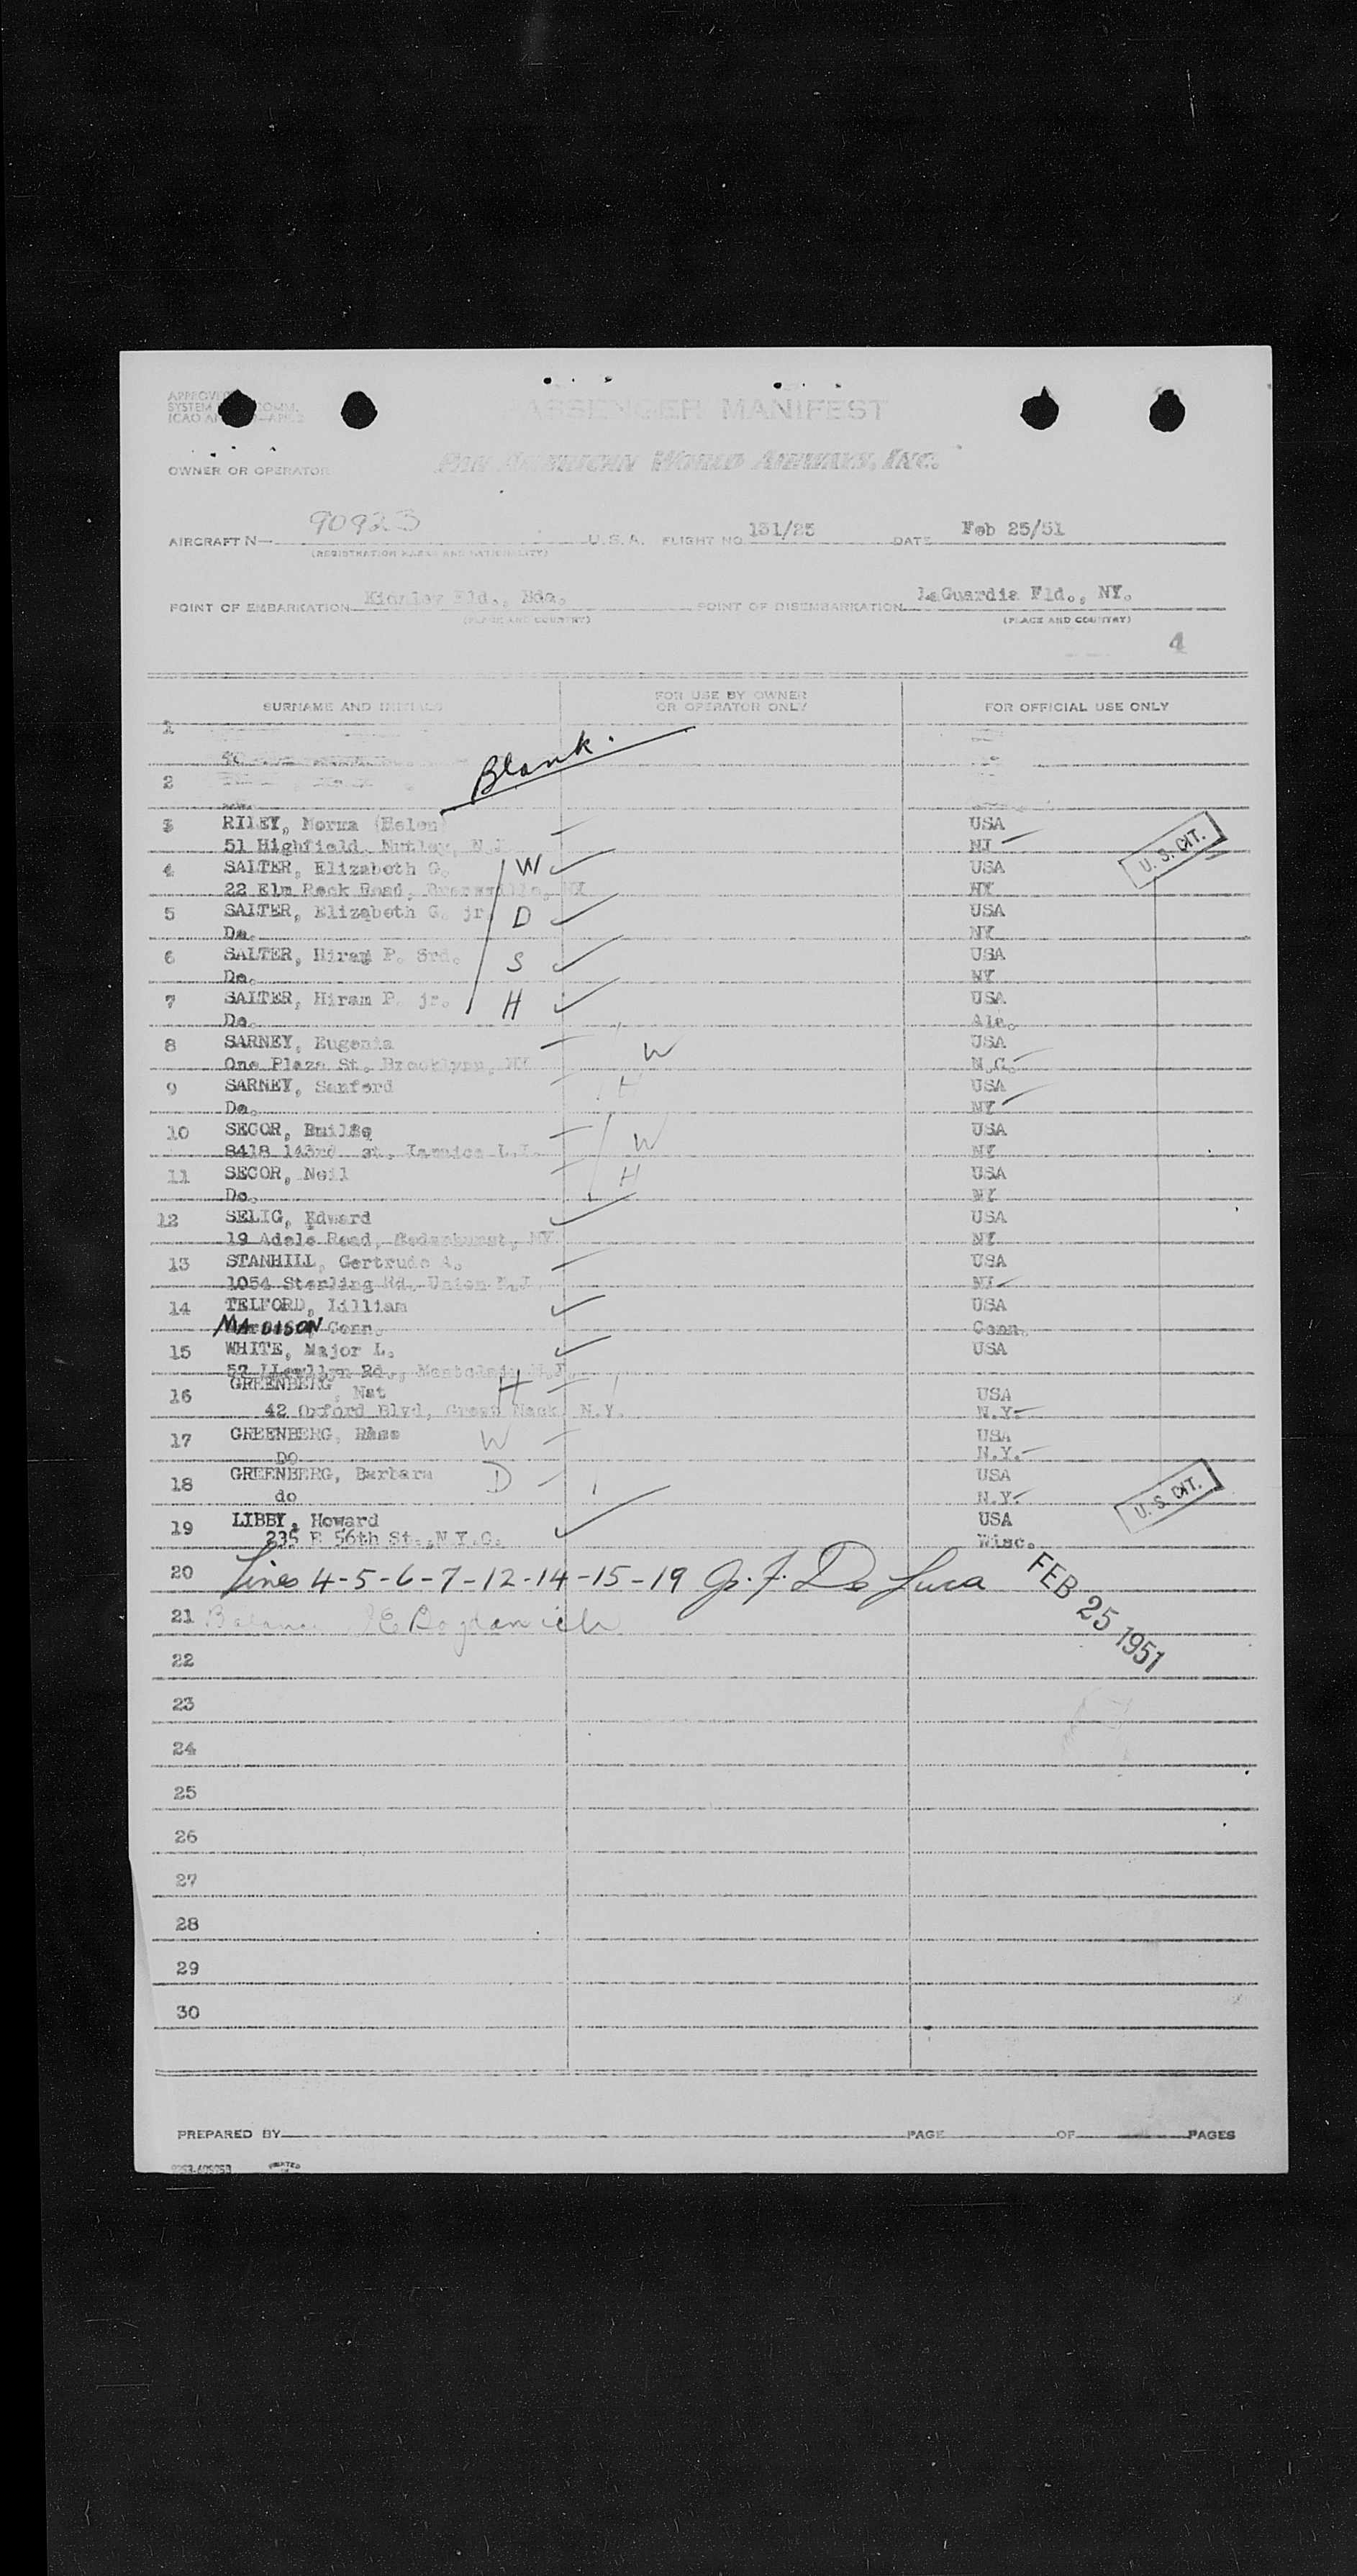 PASSENGER MANIFEST
OWNER OR OPERATOR
PAN AMERICAN WORLD AIRWAYS, INC.
AIRCRAFT N— 90923 U.S.A. FLIGHT NO. 131/25 DATE Feb 25/51
(REGISTRATION MARKS AND NATIONALITY)
POINT OF EMBARKATION Kindley Fld., Bda. POINT OF DISEMBARKATION LaGuardia Fld., NY.
(PLACE AND COUNTRY) (PLACE AND COUNTRY)
4
SURNAME AND INITIALS FOR USE BY OWNER OR OPERATOR ONLY FOR OFFICIAL USE ONLY
1
Blank.
2
3 RILEY, Norma (Helen) USA
51 Highfield, Nutley, N.J. NJ U.S. CIT.
4 SALTER, Elizabeth G. W USA
22 Elm Rock Road, Bronxville, NY NY
5 SALTER, Elizabeth G. jr. D USA
Do. NY
6 SALTER, Hiram P. 3rd. S USA
Do. NY
7 SALTER, Hiram P. jr. H USA
Do. Ala.
8 SARNEY, Eugenia W USA
One Plaza St. Brooklyn, NY N.C.
9 SARNEY, Sanford H USA
Do. NY
10 SECOR, W USA
8418 143rd st. Jamaica L.I. NY
11 SECOR, Neil H USA
Do. NY
12 SELIG, Edward USA
19 Adele Road, Cedarhurst, NY NY
13 STANHILL, Gertrude A. USA
1054 Sterling Rd. Union N.J. NJ
14 TELFORD, Lillian USA
MADISON Conn. Conn.
15 WHITE, Major L. USA
52 Llewllyn Rd., Montclair N.J.
16 GREENBERG, Nat H USA
42 Oxford Blvd, Great Neck N.Y. N.Y.
17 GREENBERG, W USA
DO N.Y.
18 GREENBERG, Barbara D USA
do N.Y. U.S. CIT.
19 LIBBY, Howard USA
235 E 56th St., N.Y.C. Wisc.
20 Lines 4-5-6-7-12-14-15-19 J. F. De Luca FEB 25 1951
21 Balance Bogdanich
22
23
24
25
26
27
28
29
30
PREPARED BY PAGE OF PAGES